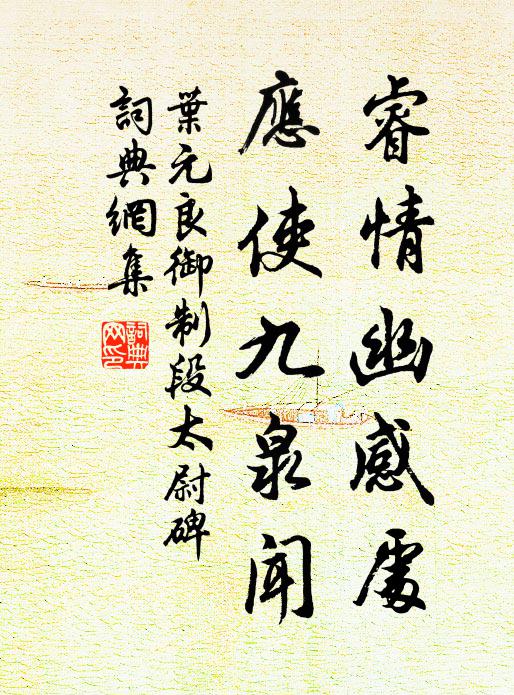 睿情幽感處
應使九泉聞
葉元良御制段太尉碑
詞典網集
詞典网印